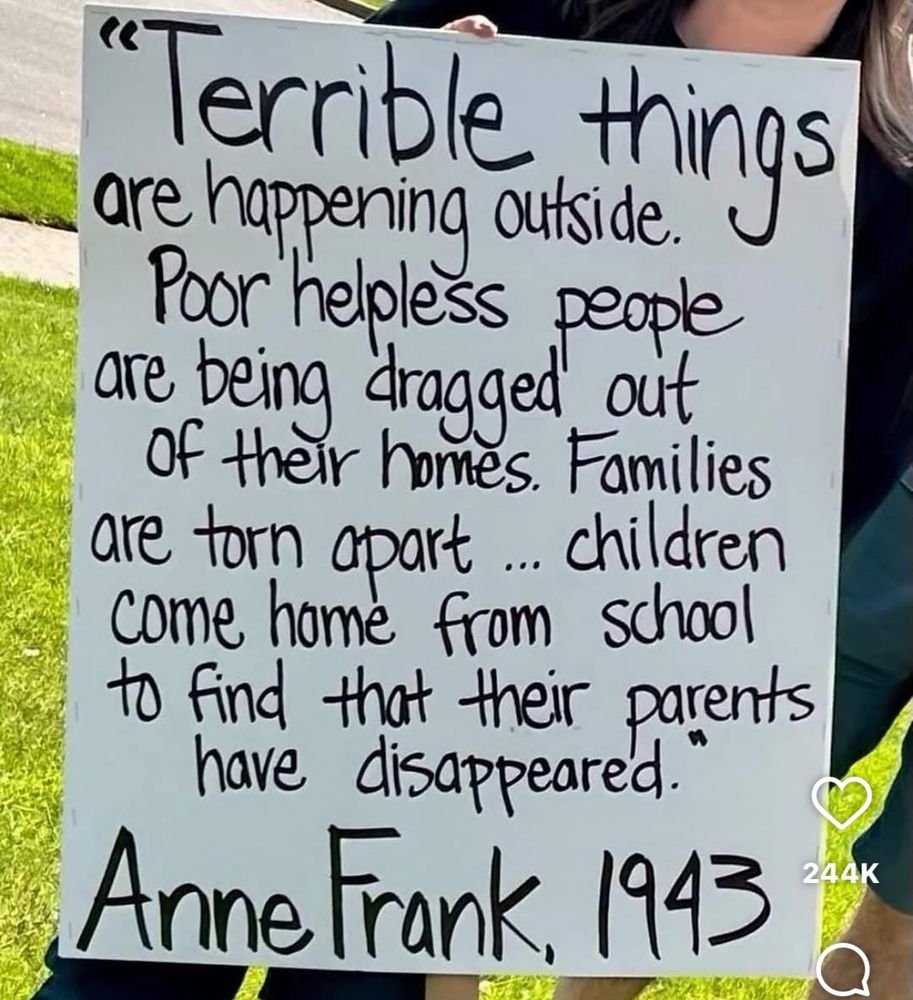 “Terrible things
are happening outside.
Poor helpless people
are being dragged out
of their homes. Families
are torn apart ... children
come home from school
to find that their parents
have disappeared."
Anne Frank, 1943
244K